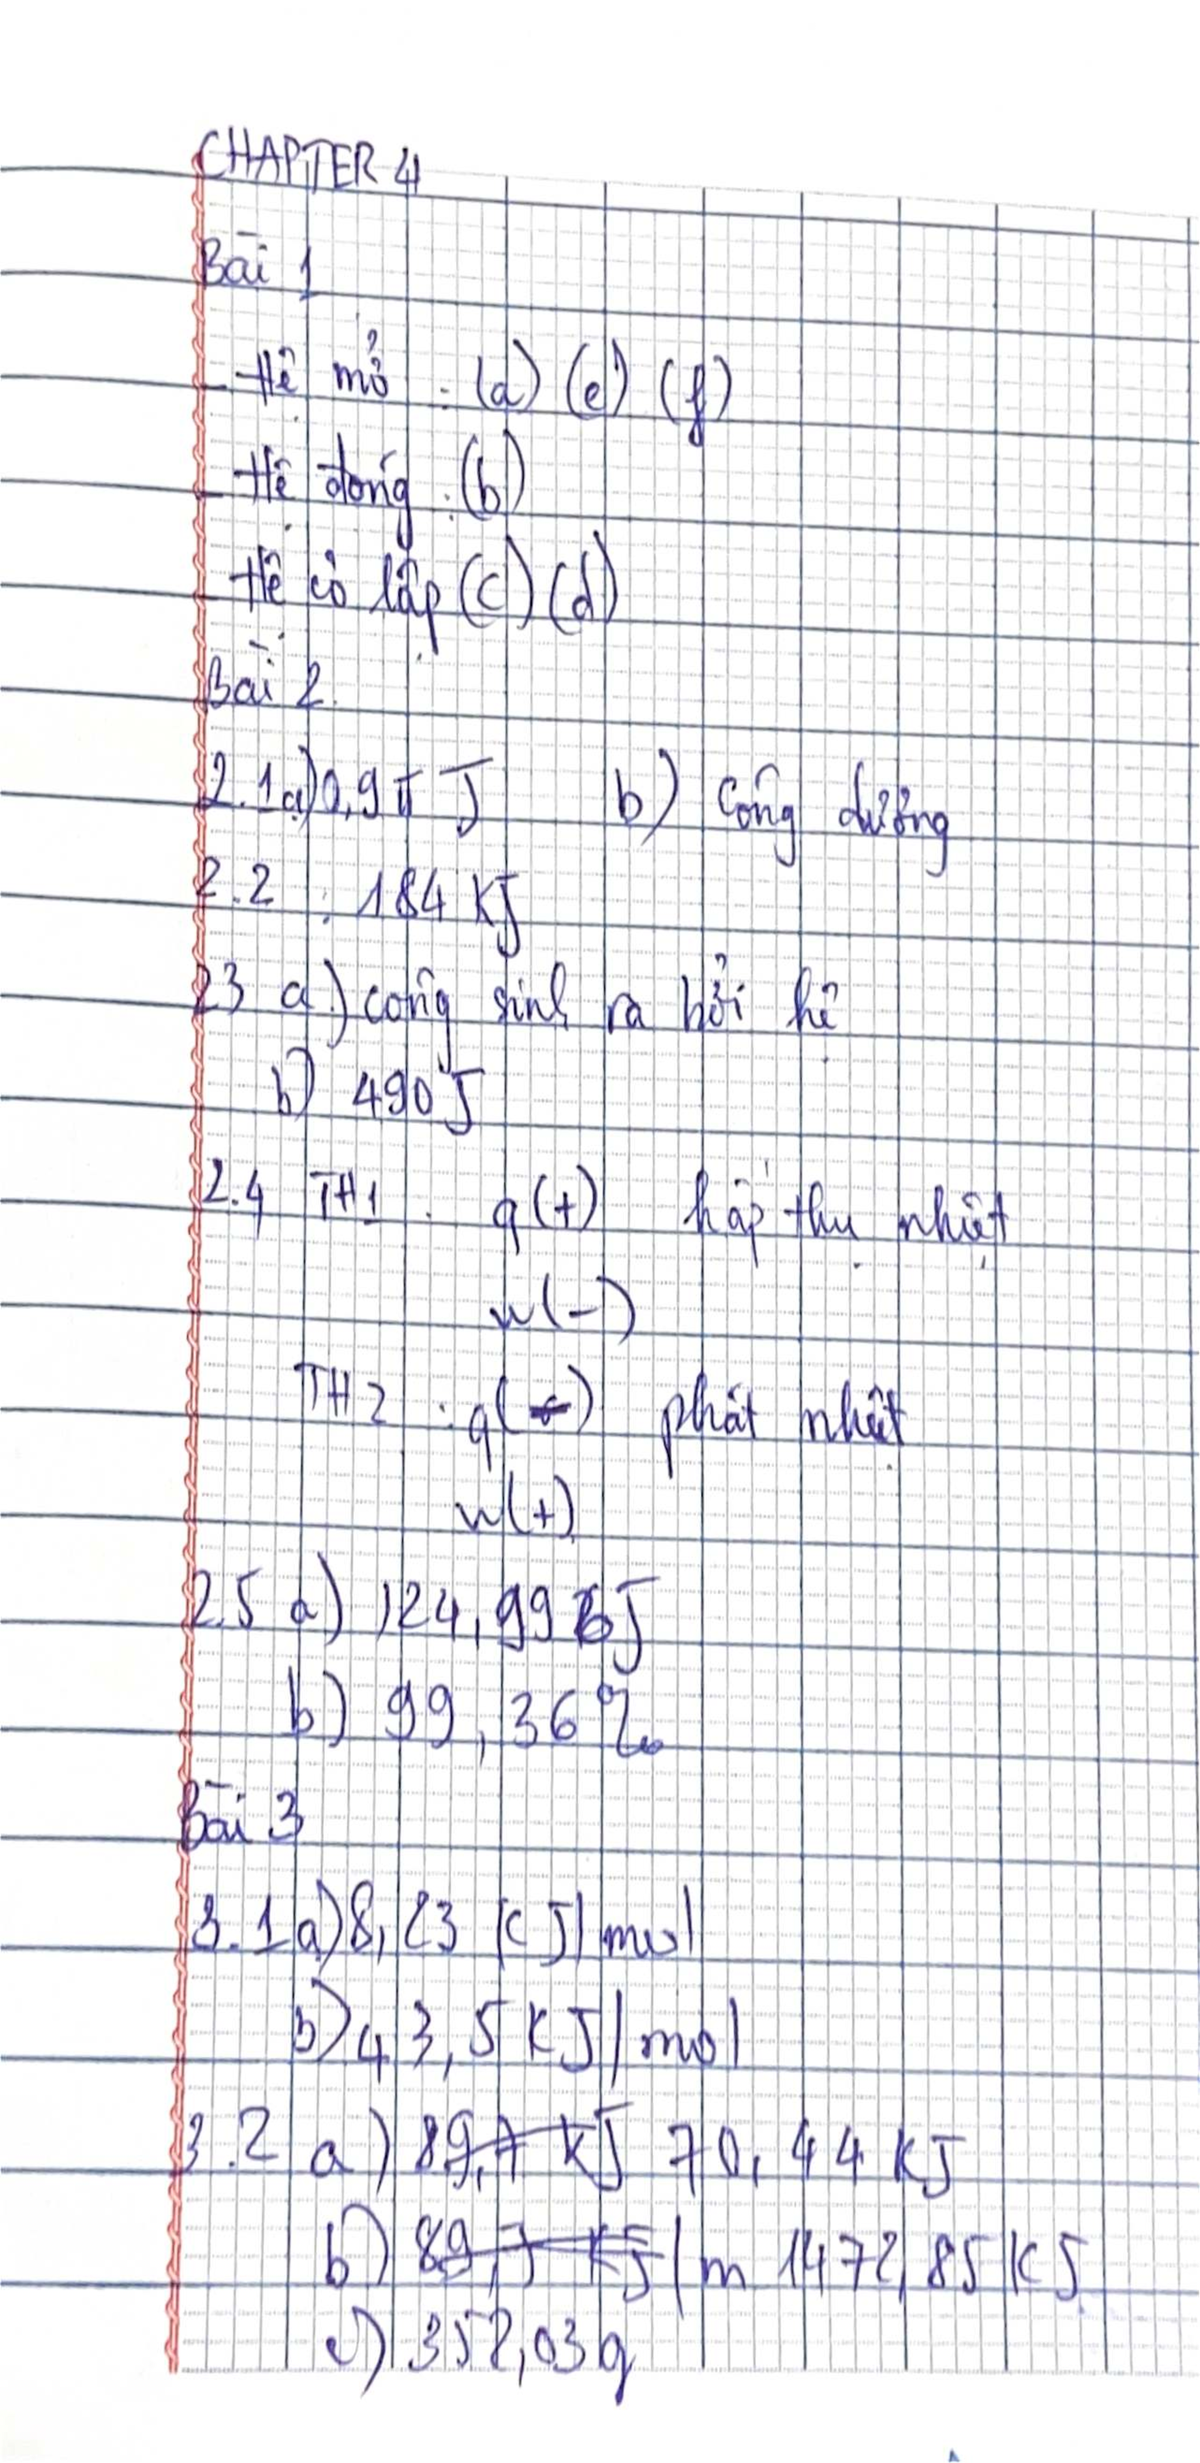 CHAPTER 4
Bài 1
- Hệ mở : (a) (e) (f)
- Hệ đóng : (b)
- Hệ cô lập (c) (d)
Bài 2.
2.1 a) 0,95 J b) Công dương
2.2 : 184 KJ
2.3 a) công sinh ra bởi hệ
b) 490 J
2.4 TH1 : q(+) hấp thụ nhiệt
w(-)
TH2 : q(-) phát nhiệt
w(+)
2.5 a) 124,996 J
b) 99,36%
Bài 3
3.1 a) 8,23 KJ/mol
b) 43,5 KJ/mol
3.2 a) 89,7 KJ 70,44 KJ
b) 89,7 KJ/m 1472,85 KJ
c) 352,03g